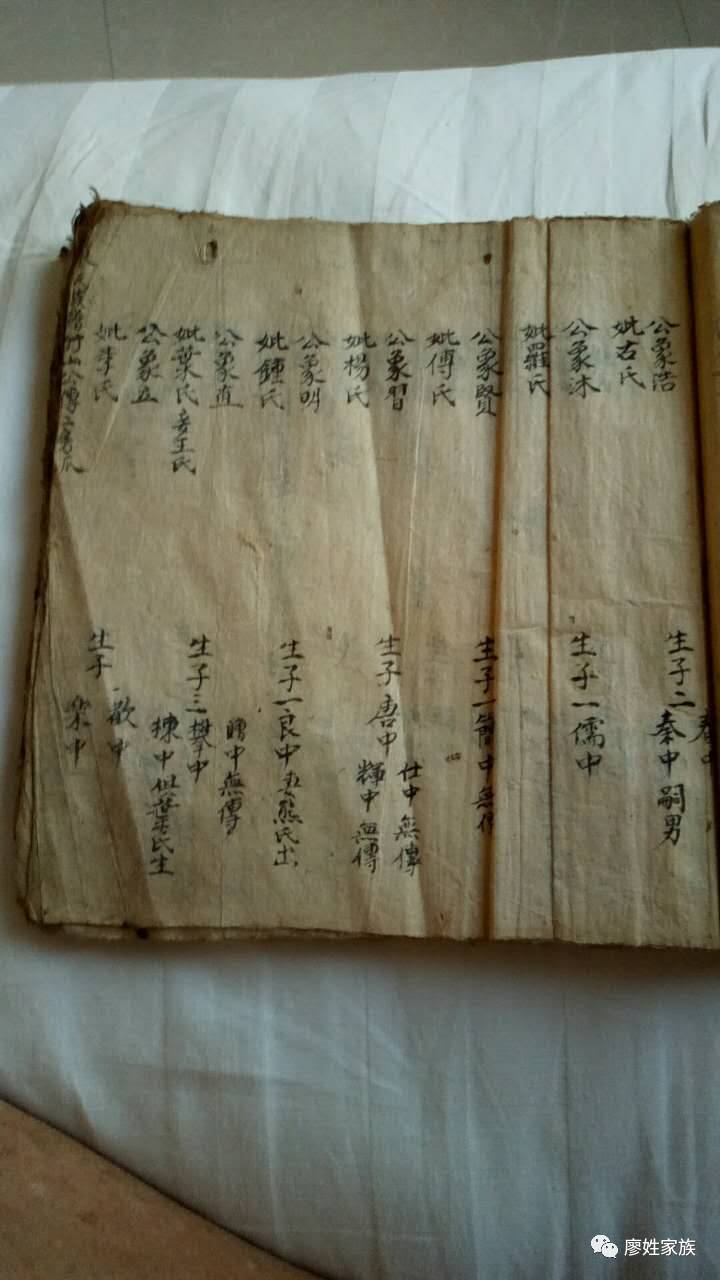 公象浩
妣古氏
生子二
秦中嗣男
公象沐
妣羅氏
生子一儒中
公象賢
妣傅氏
生子一簡中無傳
公象習
妣楊氏
生子
唐中
仕中無傳
輝中無傳
公象明
妣鍾氏
生子一良中妻熊氏出
公象直
妣葉氏妾王氏
生子三
攀中
中無傳
揀中俱葉氏生
公象立
妣李氏
生子
歡中
樂中
竹山公傳
廖姓家族